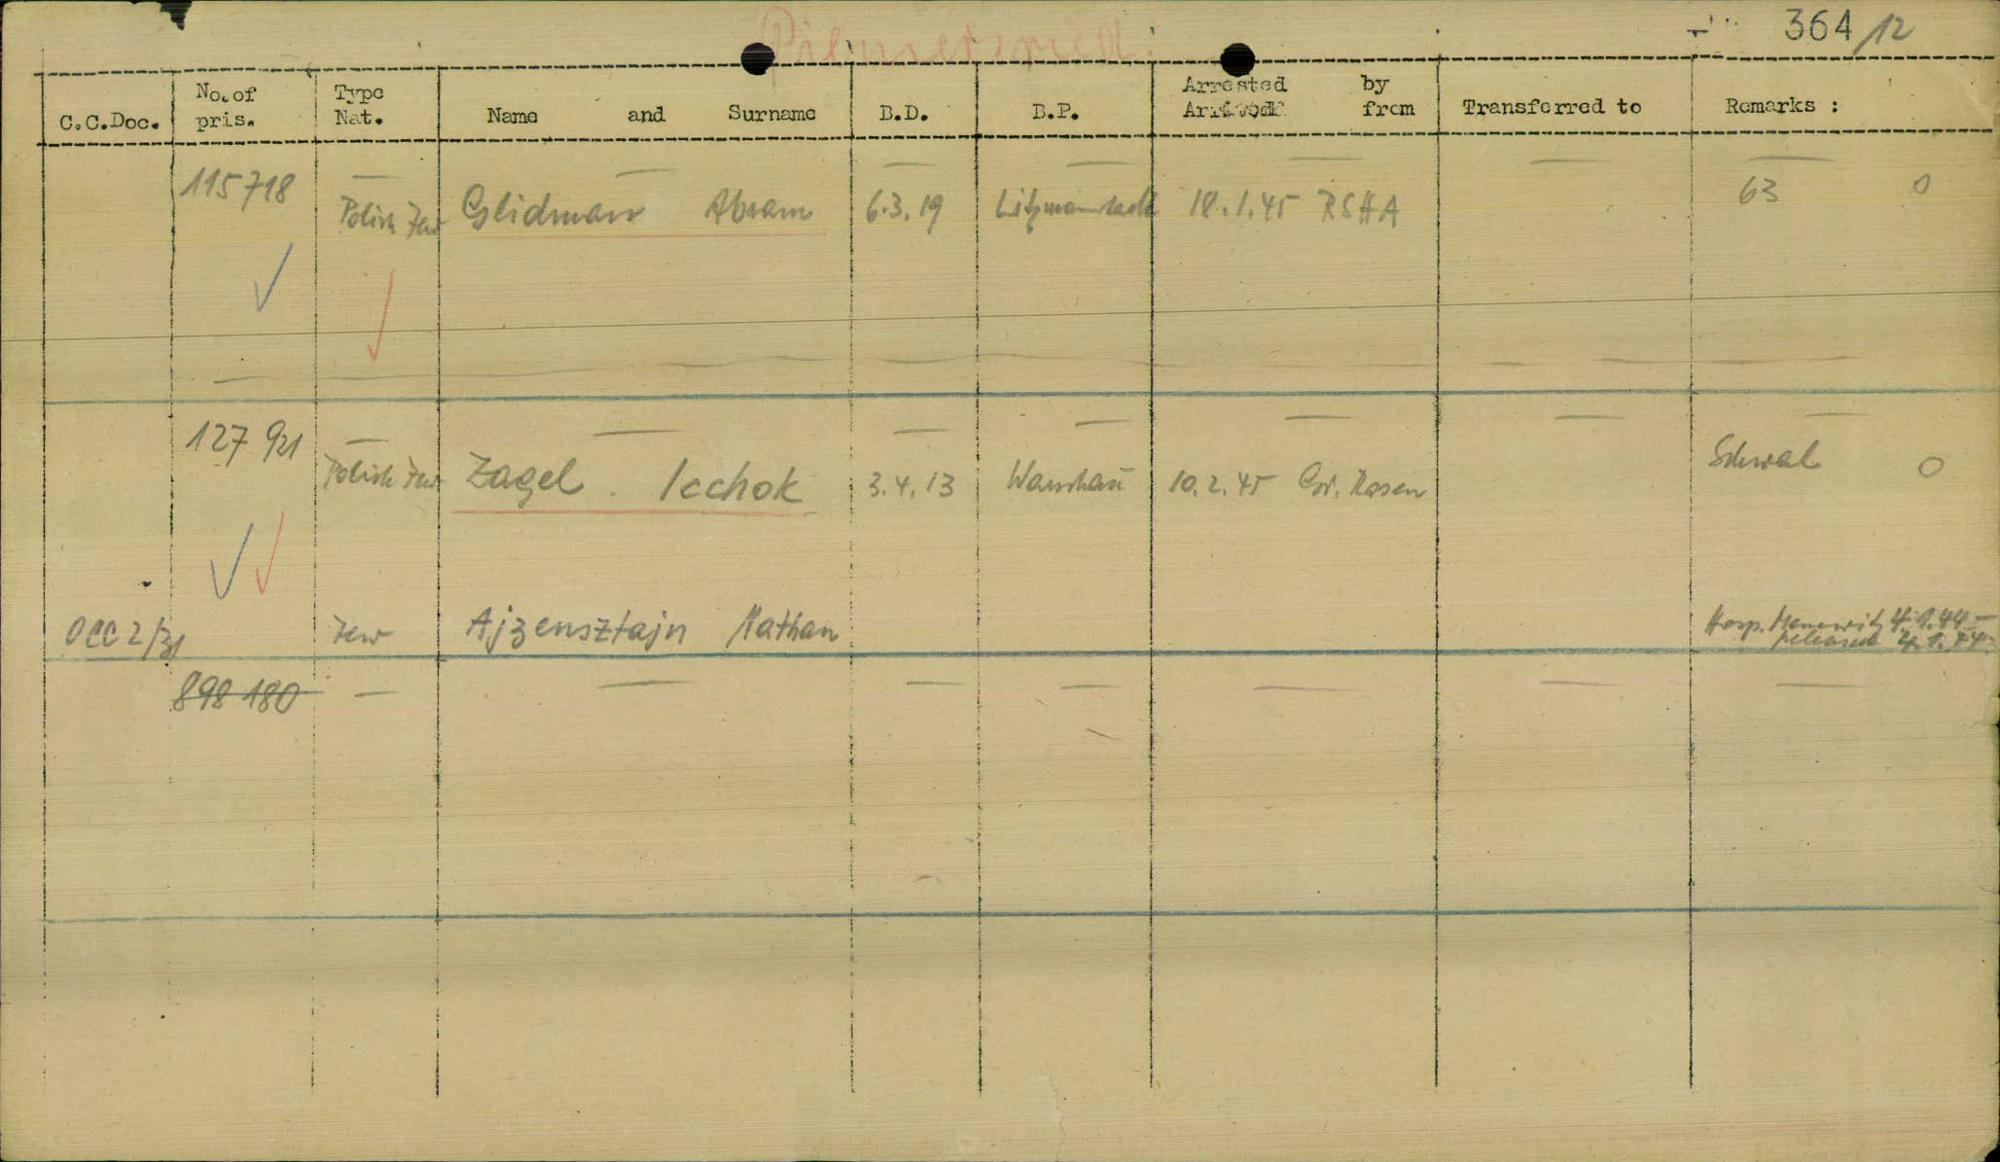 364/12
C.C.Doc. No. of pris. Type Nat. Name and Surname B.D. B.P. Arrested by Arrived from Transferred to Remarks :
115718 Polish Jew Glidman Abram 6.3.19 Litzmannstadt 18.1.45 RSHA 63 0
127 921 Polish Jew Zagel Icchok 3.4.13 Warschau 10.2.45 Gr. Rosen 0
OCC 2/31 Jew Ajzensztajn Nathan Hosp. Monowitz released
898 180